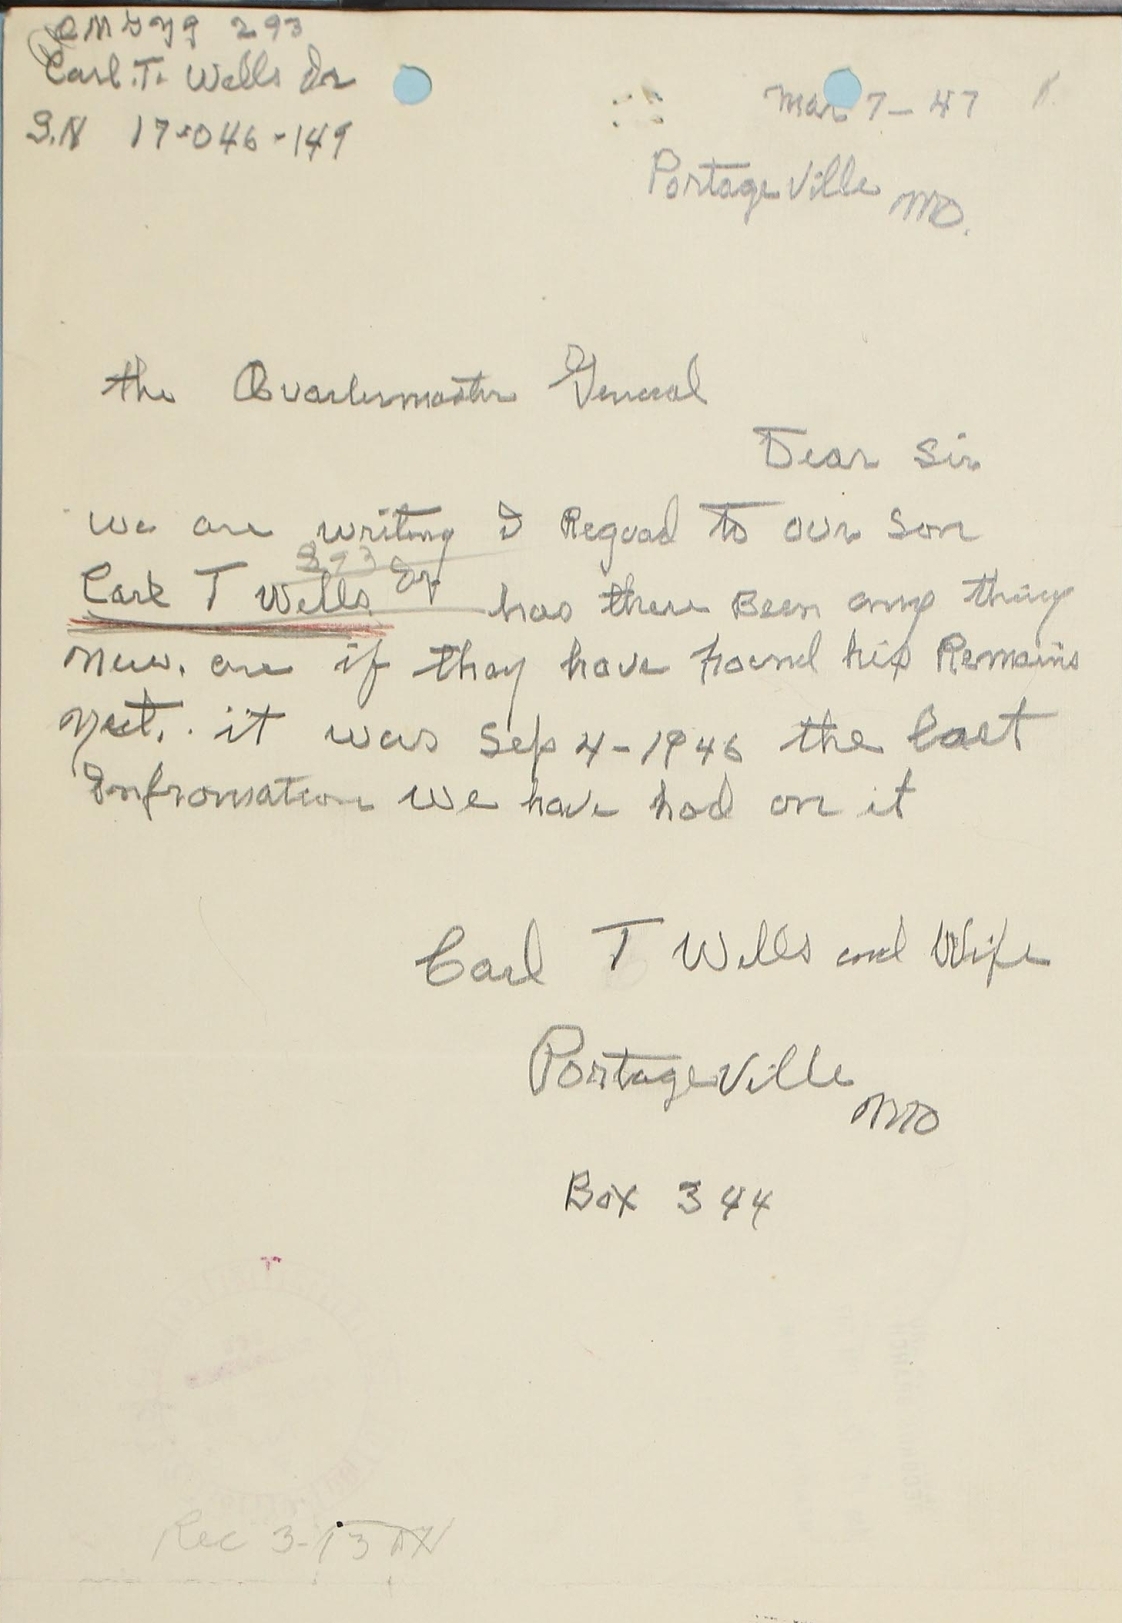 QMGYG 293
Carl. T. Wells Jr
S.N 17-046-149
Mar 7-47
Portageville Mo.
the Quartermaster General
Dear Sir
we are writing I Reguad To our Son
293
Carl T Wells Jr has there Been any thing
new. are if thay have found his Remains
yeat. it was Sep 4-1946 the last
Infromation we have had on it
Carl T Wells and Wife
Portageville
Mo
Box 344
Rec 3-13